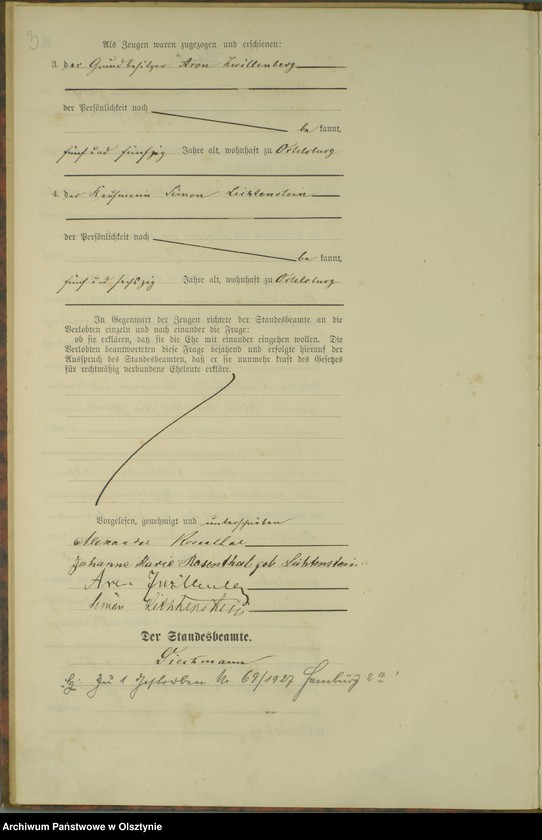 3
Als Zeugen waren zugezogen und erschienen:
3. der Grundbesitzer Aron Zwillenberg
der Persönlichkeit nach
be kannt,
fünf und fünfzig Jahre alt, wohnhaft zu Ortelsburg
4. der Kaufmann Simon Lichtenstein
der Persönlichkeit nach
be kannt,
fünf und sechszig Jahre alt, wohnhaft zu Ortelsburg
In Gegenwart der Zeugen richtete der Standesbeamte an die
Verlobten einzeln und nach einander die Frage:
ob sie erklären, daß sie die Ehe mit einander eingehen wollen. Die
Verlobten beantworteten diese Frage bejahend und erfolgte hierauf der
Ausspruch des Standesbeamten, daß er sie nunmehr kraft des Gesetzes
für rechtmäßig verbundene Eheleute erkläre.
Vorgelesen, genehmigt und unterschrieben
Alexander Rosenthal
Johanna Marie Rosenthal geb Lichtenstein
Aron Zwillenberg
Simon Lichtenstein
Der Standesbeamte.
Dieckmann
Zu 1 gestorben Nr 69/1927 Hamburg 2a
Archiwum Państwowe w Olsztynie